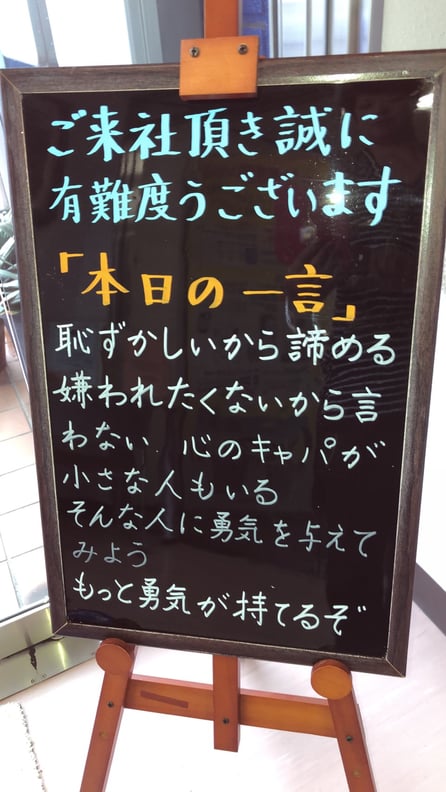 ご来社頂き誠に
有難度うございます
「本日の一言」
恥ずかしいから諦める
嫌われたくないから言
わない 心のキャパが
小さな人もいる
そんな人に勇気を与えて
みよう
もっと勇気が持てるぞ